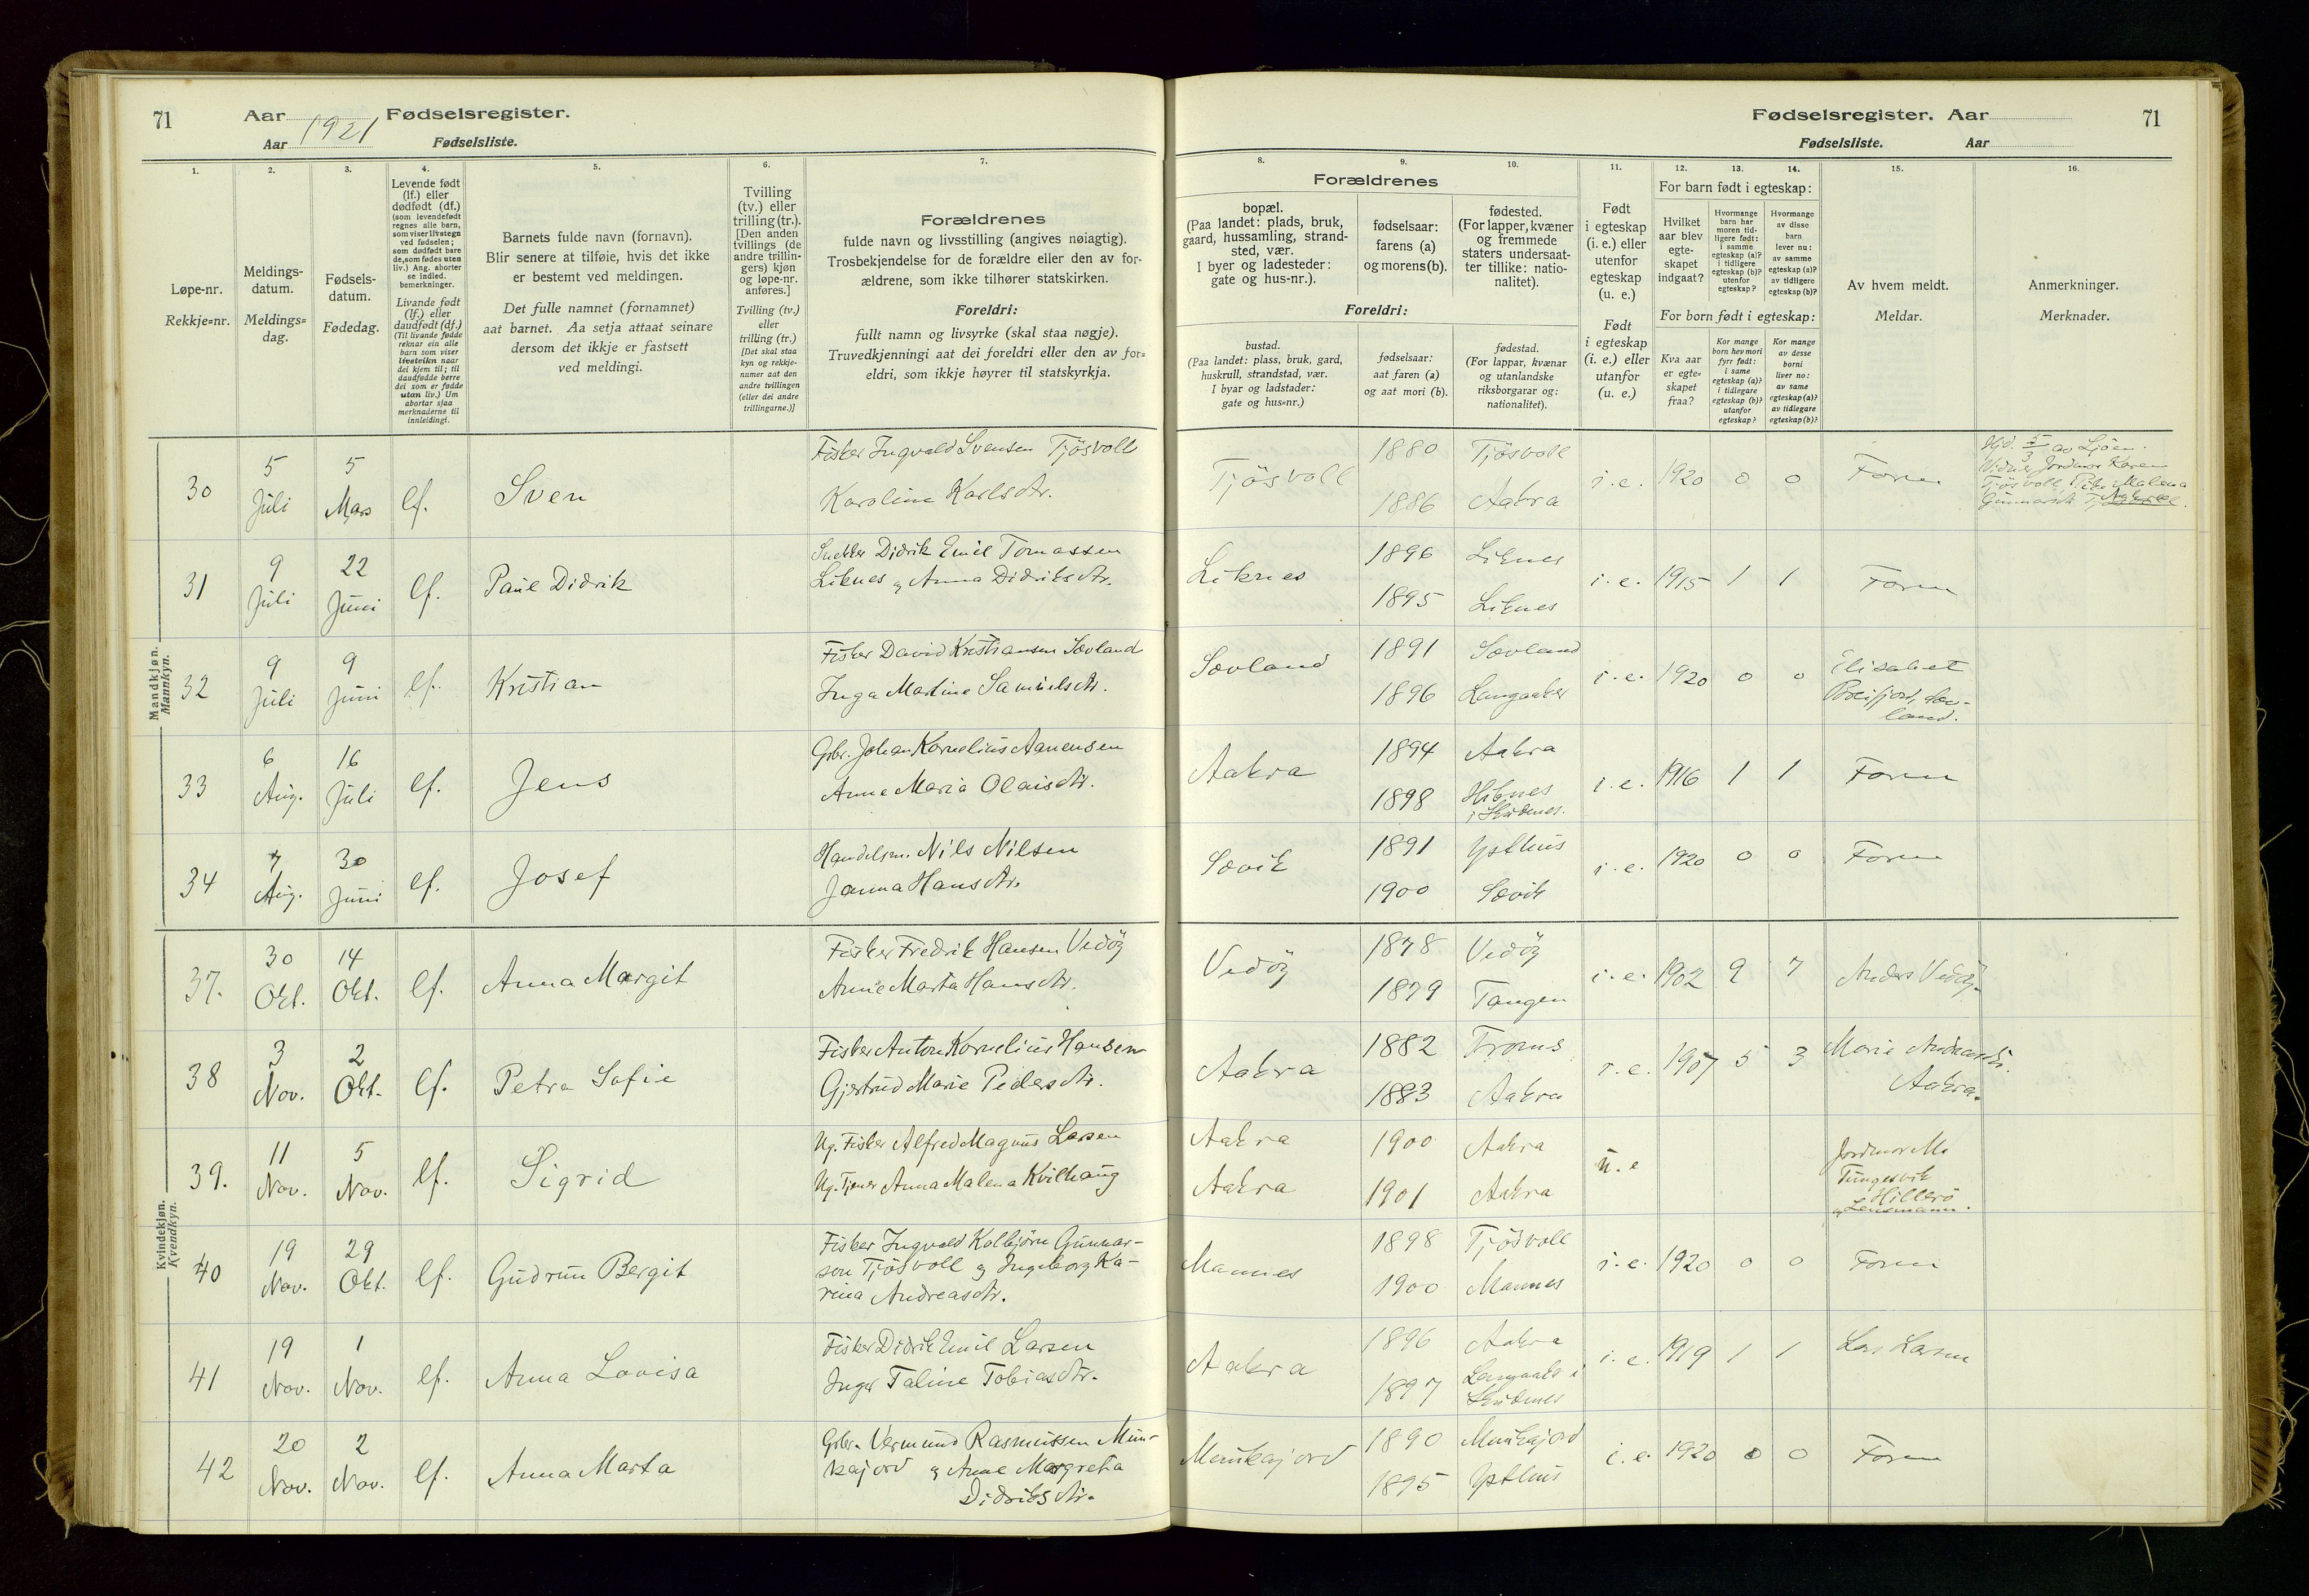 71
Aar
Fødselsregister.
Aar 1921
Fødselsliste.
Fødselsregister. Aar
71
Fødselsliste.
Aar
1.
Løpe-nr.
Rekkje=nr.
2.
Meldings-
datum.
Meldings=
dag.
3.
Fødsels-
datum.
Fødedag.
4.
Levende født
(lf.) eller
dødfødt (df.)
(som levendefødt
regnes alle barn,
som viser livstegn
ved fødselen;
som dødfødt bare
de, som fødes uten
liv.) Ang. aborter
se indled.
bemerkninger.
Livande født
(lf.) eller
daudfødt (df.)
(Til livande fødde
reknar ein alle
barn som viser
livsteikn naar
dei kjem til; til
daudfødde berre
dei som er fødde
utan liv.) Um
abortar sjaa
merknaderne til
innleidingi.
5.
Barnets fulde navn (fornavn).
Blir senere at tilføie, hvis det ikke
er bestemt ved meldingen.
Det fulle namnet (fornamnet)
aat barnet. Aa setja attaat seinare
dersom det ikkje er fastsett
ved meldingi.
6.
Tvilling
(tv.) eller
trilling (tr.).
[Den anden
tvillings (de
andre trillin-
gers) kjøn
og løpe-nr.
anføres.]
Tvilling (tv.)
eller
trilling (tr.)
[Det skal staa
kyn og rekkje-
numer aat den
andre tvillingen
(eller dei andre
trillingarne.)]
7.
Forældrenes
fulde navn og livsstilling (angives nøiagtig).
Trosbekjendelse for de forældre eller den av for-
ældrene, som ikke tilhører statskirken.
Foreldri:
fullt namn og livsyrke (skal staa nøgje).
Truvedkjenningi aat dei foreldri eller den av for=
eldri, som ikkje høyrer til statskyrkja.
8.
9.
10.
Forældrenes
bopæl.
(Paa landet: plads, bruk,
gaard, hussamling, strand-
sted, vær.
I byer og ladesteder:
gate og hus-nr.).
fødselsaar:
farens (a)
og morens (b).
fødested.
(For lapper, kvæner
og fremmede
staters undersaat-
ter tillike: natio-
nalitet).
Foreldri:
bustad.
(Paa landet: plass, bruk, gard,
huskrull, strandstad, vær.
I byar og ladstader:
gate og hus=nr.)
fødselsaar:
aat faren (a)
og aat mori (b).
fødestad.
(For lappar, kvænar
og utanlandske
riksborgarar og:
nationalitet).
11.
Født
i egteskap
(i. e.) eller
utenfor
egteskap
(u. e.)
Født
i egteskap
(i. e.) eller
utanfor
(u. e.)
12.
13.
14.
For barn født i egteskap:
Hvilket
aar blev
egte-
skapet
indgaat?
Hvormange
barn har
moren tid-
ligere født:
i samme
egteskap (a)?
i tidligere
egteskap (b)?
utenfor
egteskap?
Hvormange
av disse
barn
lever nu:
av samme
egteskap (a)?
av tidligere
egteskap (b)?
For born født i egteskap:
Kva aar
er egte=
skapet
fraa?
Kor mange
born hev mori
fyrr født:
i same
egteskap (a)?
i tidlegare
egteskap (b)?
utanfor
egteskap?
Kor mange
av desse
borni
liver no:
av same
egteskap (a)?
av tidlegare
egteskap (b)?
15.
Av hvem meldt.
Meldar.
16.
Anmerkninger.
Merknader.
Mandkjøn.
Mannkyn.
30
5
Juli
5
Mars
lf.
Sven
Fisker Ingvald Svensen Tjøsvoll
Karoline Karlsdtr.
Tjøsvoll
1880
1886
Tjøsvoll
Aakra
i. e.
1920
0
0
31
9
Juli
22
Juni
lf.
Paul Didrik
Snekker Didrik Emil Tomassen
Liknes og Anna Didriksdtr.
Liknes
1896
1895
Liknes
Liknes
i. e.
1915
1
1
32
9
Juli
9
Juni
lf.
Kristian
Fisker David Kristiansen Sævland
Inga Martine Samuelsdtr.
Sævland
1891
1896
Sævland
Langaaker
i. e.
1920
0
0
Elisabet
Breifjord, Sæv-
land.
33
6
Aug.
16
Juli
lf.
Jens
Gbr. Johan Kornelius Aanensen
Anne Maria Olaisdtr.
Aakra
1894
1898
Aakra
Hiknes
i Skudenes.
i. e.
1916
1
1
34
7
Aug.
30
Juni
lf.
Josef
Handelsm. Nils Nilsen
Janna Hansdtr.
Sævik
1891
1900
Ysthus
Sævik
i. e.
1920
0
0
Kvindekjøn.
Kvendkyn.
37.
30
Okt.
14
Okt.
lf.
Anna Margit
Fisker Fredrik Hansen Vedøy
Anne Marta Hansdtr.
Vedøy
1878
1879
Vedøy
Tangen
i. e.
1902
9
7
Anders Vedøy.
38
3
Nov.
2
Okt.
lf.
Petra Sofie
Fisker Anton Kornelius Hansen
Gjertrud Marie Pedersdtr.
Aakra
1882
1883
Troms
Aakra
i. e.
1907
5
3
Marie Andreasdtr.
Aakra.
39.
11
Nov.
5
Nov.
lf.
Sigrid
Ug. Fisker Alfred Magnus Larsen
Ug. Tjener Anna Malena Kvilhaug
Aakra
Aakra
1900
1901
Aakra
Aakra
u. e
Jordmor
Tungesvik
Lensmann.
40
19
Nov.
29
Okt.
lf.
Gudrun Bergit
Fisker Ingvald Kolbjørn Gunnar-
son Tjøsvoll og Ingeborg Ka-
rina Andreasdtr.
Mannes
1898
1900
Tjøsvoll
Mannes
i. e.
1920
0
0
41
19
Nov.
1
Nov.
lf.
Anna Lovisa
Fisker Didrik Emil Larsen
Inger Taline Tobiasdtr.
Aakra
1896
1897
Aakra
i
Skudenes
i. e.
1919
1
1
Lars Larsen
42
20
Nov.
2
Nov.
lf.
Anna Marta
Gbr. Vermund Rasmussen Mun-
kajord og Anne Margreta
Didriksdtr.
Munkajord
1890
1895
Munkajord
Ysthus
i. e.
1920
0
0